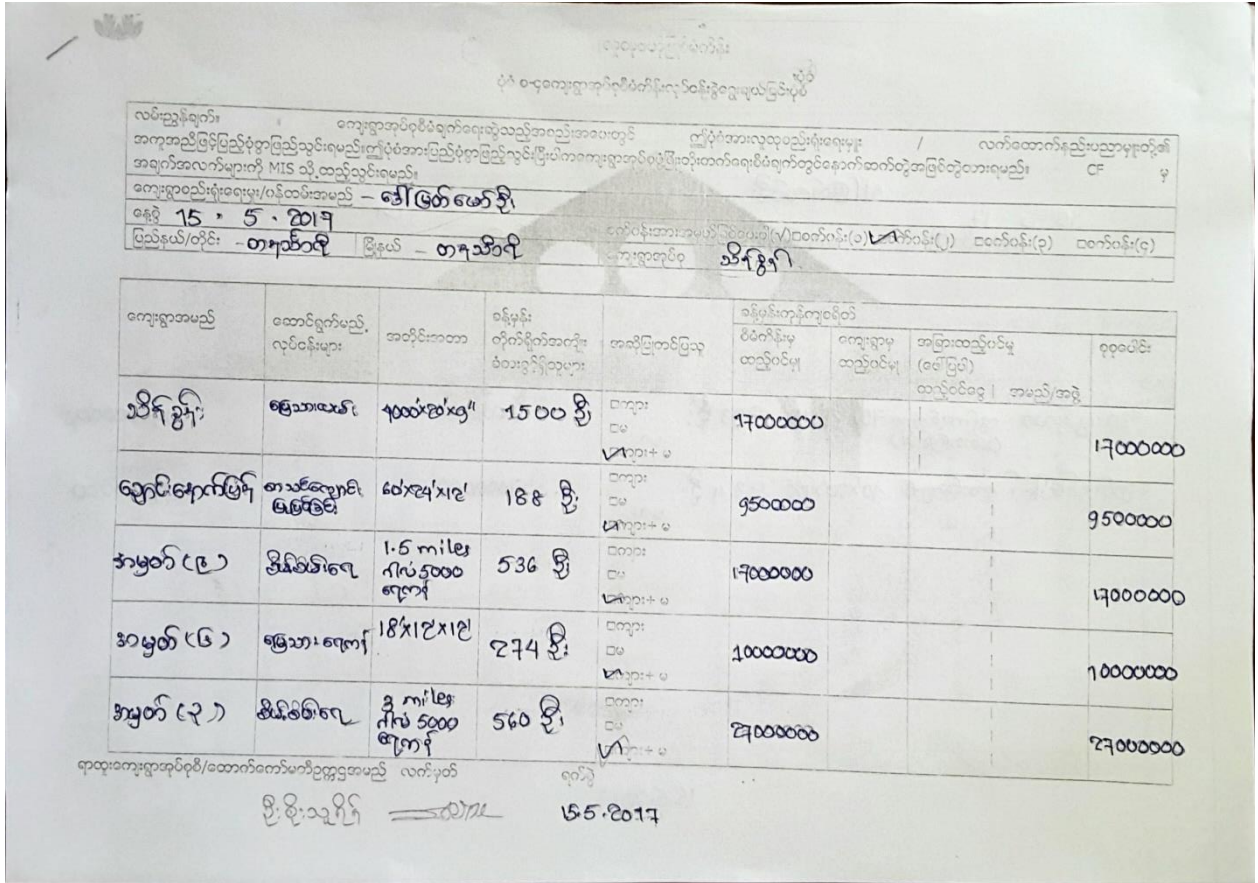 ပုံစံ ၁-၄ကျေးရွာအုပ်စုစီမံကိန်းလုပ်ငန်းခွဲရွေးချယ်ခြင်းပုံစံ
လမ်းညွှန်ချက်။ ကျေးရွာအုပ်စုစီမံချက်ရေးဆွဲသည့်အစည်းအဝေးတွင် ဤပုံစံအားလူထုစည်းရုံးရေးမှူး / လက်ထောက်နည်းပညာမှူးတို့၏
အကူအညီဖြင့်ပြည့်စုံစွာဖြည့်သွင်းရမည်။ဤပုံစံအားပြည့်စုံစွာဖြည့်သွင်းပြီးပါကကျေးရွာအုပ်စုဖွံ့ဖြိုးတိုးတက်ရေးစီမံချက်တွင်နောက်ဆက်တွဲအဖြစ်တွဲထားရမည်။ CF မှ
အချက်အလက်များကို MIS သို့ထည့်သွင်းရမည်။
ကျေးရွာစည်းရုံးရေးမှူး/ဝန်ထမ်းအမည် – ဒေါ်မြတ်မော်ဦး
နေ့စွဲ 15 . 5 . 2017 စက်ဝန်း(၁) စက်ဝန်း(၂) □စက်ဝန်း(၃) □စက်ဝန်း(၄)
ပြည်နယ်/တိုင်း – တနင်္သာရီ မြို့နယ် – တနင်္သာရီ ကျေးရွာအုပ်စု သိန်ခွန်း
ကျေးရွာအမည် ဆောင်ရွက်မည့် လုပ်ငန်းများ အတိုင်းအတာ ခန့်မှန်း တိုက်ရိုက်အကျိုး ခံစားခွင့်ရှိသူများ အဆိုပြုတင်ပြသူ ခန့်မှန်းကုန်ကျစရိတ်
စီမံကိန်းမှ ထည့်ဝင်မှု ကျေးရွာမှ ထည့်ဝင်မှု အခြားထည့်ဝင်မှု (ဖေါ်ပြပါ) စုစုပေါင်း
ထည့်ဝင်ငွေ အမည်/အဖွဲ့
သိန်ခွန်း မြေသားလမ်း 4000'x20'x9" 1500 ဦး □ကျား □မ ကျား+ မ 17000000 17000000
ညောင်းနောက်ပြန် စာသင်ကျောင်း ပြုပြင်ခြင်း 60'x24'x12' 188 ဦး □ကျား □မ ကျား+ မ 9500000 9500000
အမှတ် (၉) 1.5 miles ဂါလံ 5000 ရေကန် 536 ဦး □ကျား □မ ကျား+ မ 17000000 17000000
အမှတ် (၆) မြေသားရေကန် 18'x12'x12' 274 ဦး □ကျား □မ ကျား+ မ 10000000 10000000
အမှတ် (၃) 3 miles ဂါလံ 5000 ရေကန် 560 ဦး □ကျား □မ ကျား+ မ 27000000 27000000
ရာထူးကျေးရွာအုပ်စုစီ/ထောက်ကော်မတီဥက္ကဋ္ဌအမည် လက်မှတ် ရက်စွဲ
ဦးစိုးသူရိန် 15.5.2017